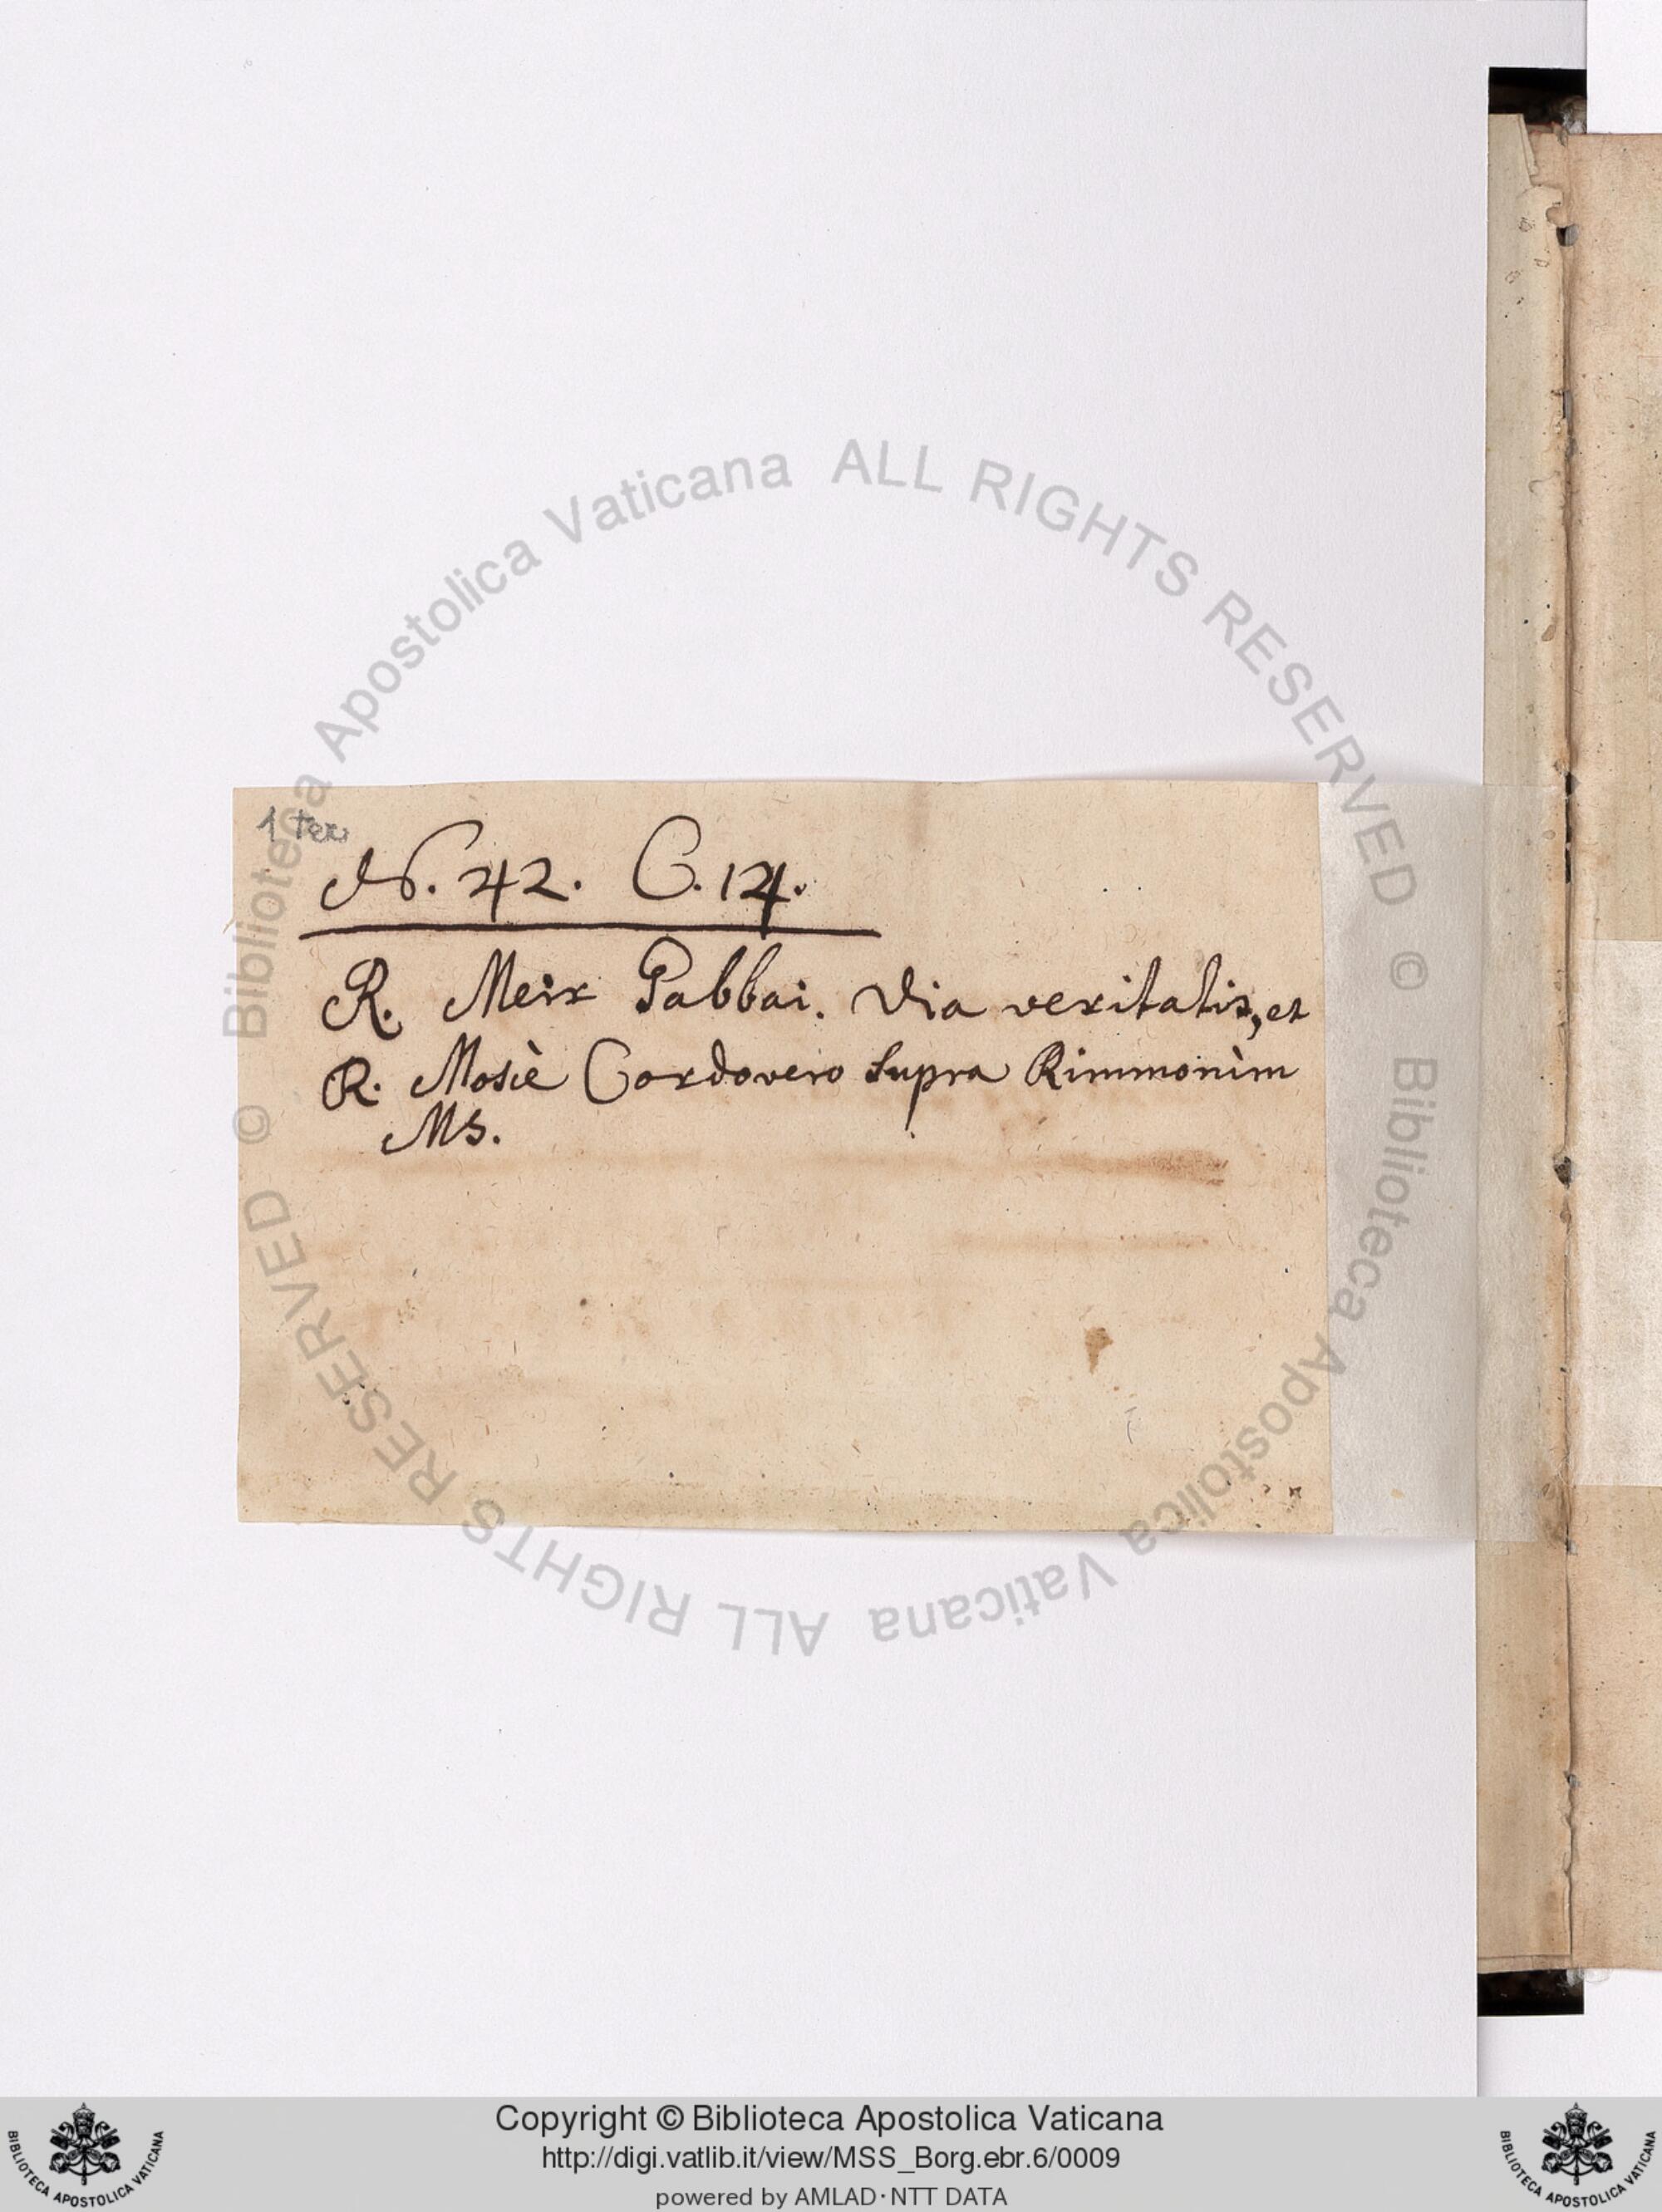 1 ter
N. 42. C. 14.
R. Meir Gabbai. Via veritatis, et
R. Mosiè Cordovero supra Rimmonìm
MS.
© Biblioteca Apostolica Vaticana ALL RIGHTS RESERVED
© Biblioteca Apostolica Vaticana ALL RIGHTS RESERVED
Copyright © Biblioteca Apostolica Vaticana
http://digi.vatlib.it/view/MSS_Borg.ebr.6/0009
powered by AMLAD·NTT DATA
BIBLIOTECA APOSTOLICA VATICANA
BIBLIOTECA APOSTOLICA VATICANA